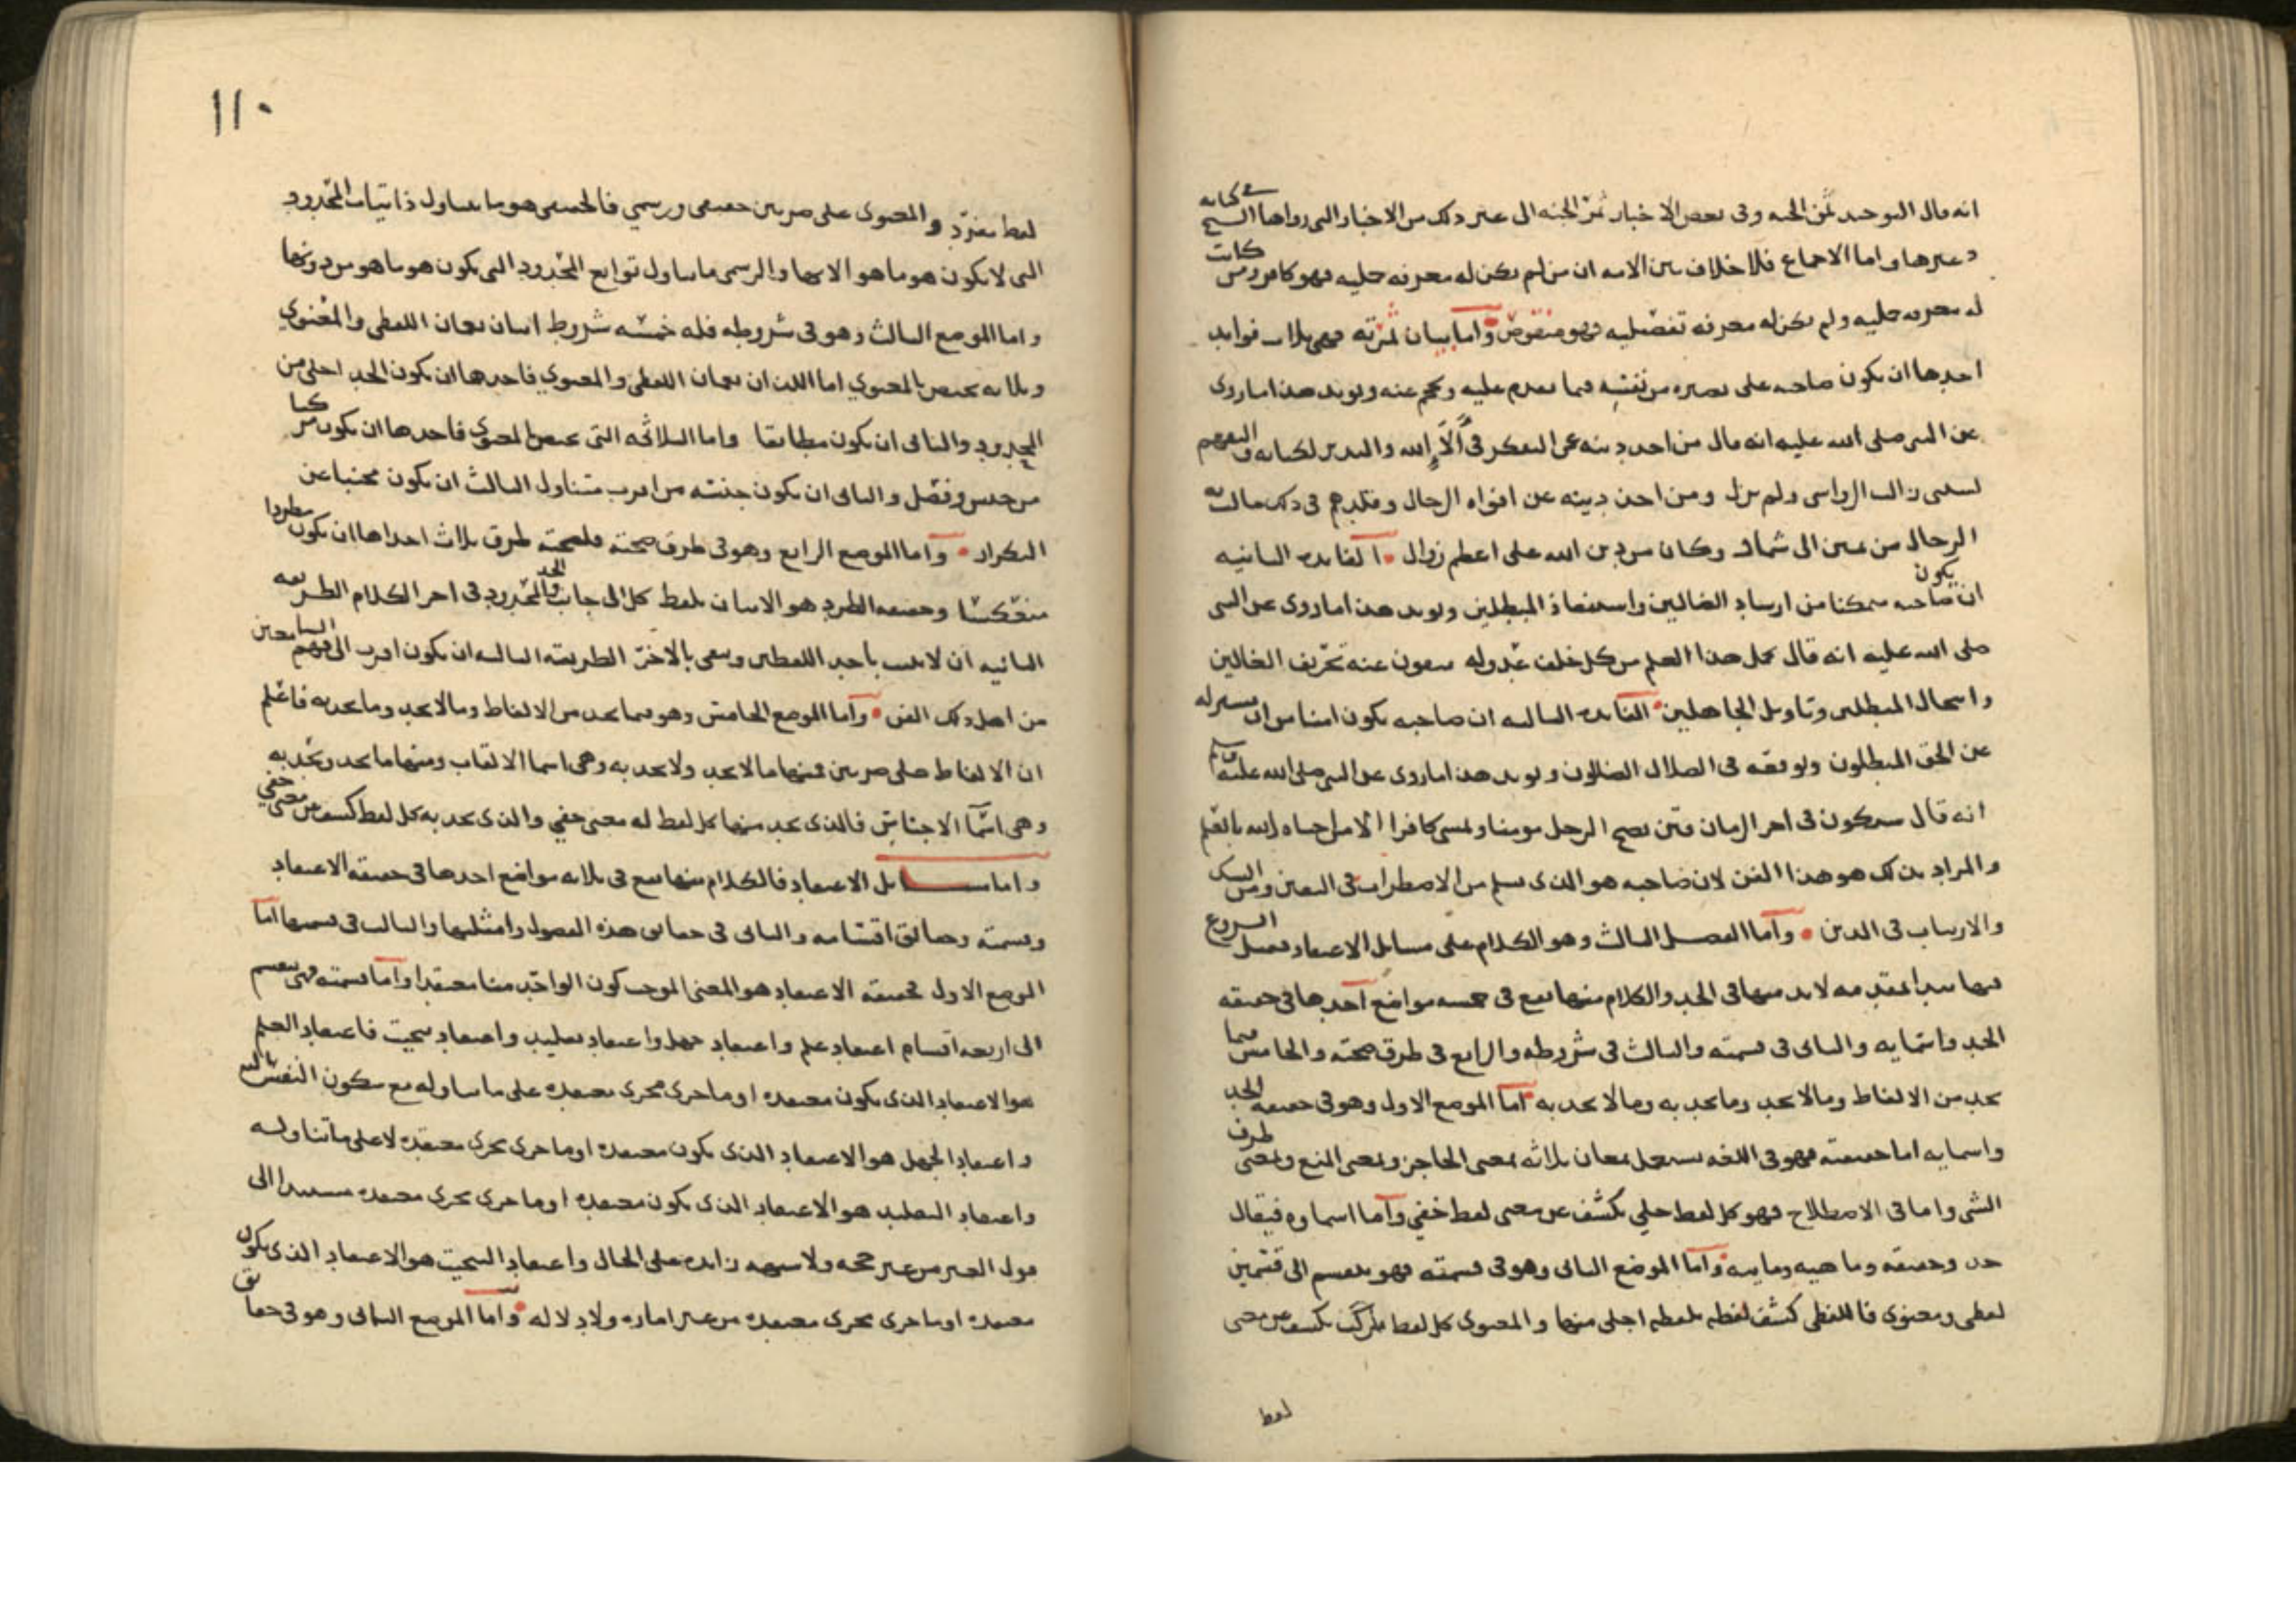 انه قال التوحيد ثمن الجنه وفى بعض الاخبار ثمن الجنه الى غير ذلك من الاخبار التى رواها الشيخ فى كتابه
وغيرها واما الاجماع فلا خلاف بين الامه ان من لم يكن له معرفه جليه فهو كافر ومن كانت
له معرفه جليه ولم يكن له معرفه تفصليه فهو منقوص واما بيان ثمرته فهى ثلاث فوايد
احدها ان يكون صاحبه على بصيره من نفسه فيما يقدم عليه ويحجم عنه ويويد هذا ما روى
عن النبى صلى الله عليه انه قال من اخذ دينه عن التفكر فى آلاء الله والتدبر لكتابه والتفهم
لسنتى زالت الرواسى ولم يزل ومن اخذ دينه عن افواه الرجال وقلدهم فى ذلك مالت به
الرجال من يمين الى شمال وكان من دين الله على اعظم زوال الفايده الثانيه
ان يكون صاحبه متمكنا من ارشاد الضالين واستنقاذ المبطلين ويويد هذا ما روى عن النبى
صلى الله عليه انه قال يحمل هذا العلم من كل خلف عدوله ينفون عنه تحريف الغالين
وانتحال المبطلين وتاويل الجاهلين الفايده الثالثه ان صاحبه يكون امنا من ان يستزله
عن الحق المبطلون ويوقعه فى الضلال الضالون ويويد هذا ما روى عن النبى صلى الله عليه
انه قال سيكون فى اخر الزمان فتن يصبح الرجل مومنا ويمسى كافرا الا من احياه الله بالعلم
والمراد بذلك هو هذا الفن لان صاحبه هو الذى يسلم من الاضطراب فى اليقين ومن الشك
والارتياب فى الدين واما الفصل الثالث وهو الكلام على مسايل الاعتقاد فقبل الشروع
فيها نبدا بمقدمه لا بد منها فى الحد والكلام منها يقع فى خمسه مواضع احدها فى حقيقه
الحد واسمايه والثانى فى قسمته والثالث فى شروطه والرابع فى طرق صحته والخامس فيما
يحد من الالفاظ وما لا يحد وما يحد به وما لا يحد به اما الموضع الاول وهو فى حقيقه الحد
واسمايه اما حقيقته فهو فى اللغه يستعمل بمعان ثلاثه بمعنى الحاجز وبمعنى المنع وبمعنى طرف
الشى واما فى الاصطلاح فهو كل لفظ جلي يكشف عن معنى لفظ خفي واما اسماوه فيقال
حد وحقيقه وماهيه ومايه واما الموضع الثانى وهو فى قسمته فهو ينقسم الى قسمين
لفظى ومعنوى فاللفظى كشف لفظه بلفظه اجلى منها والمعنوى كل لفظ مركب يكشف عن معنى
لفظ
١١٠
لفظ مفرد والمعنوى على ضربين حقيقى ورسمي فالحقيقى هو ما يتناول ذاتيات المحدود
التى لا يكون هو ما هو الا بها والرسمى ما يتناول توابع المحدود التى يكون هو ما هو من دونها
واما الموضع الثالث وهو فى شروطه فله خمسه شروط اثنان يعمان اللفظى والمعنوي
وثلاثه تختص بالمعنوي اما اللذان يعمان اللفظى والمعنوي فاحدها ان يكون الحد اجلى من
المحدود والثانى ان يكون مطابقا واما الثلاثه التى تختص المعنوى فاحدها ان يكون مركبا
من جنس وفصل والثانى ان يكون جنسه من اقرب متناول الثالث ان يكون مجنبا عن
التكرار واما الموضع الرابع وهو فى طرق صحته فلصحته طرق ثلاث احداها ان يكون مطردا
منعكسا وحقيقه الطرد هو الاتيان بلفظ كل الى جانب الحد والمحدود فى اخر الكلام الطريقه
الثانيه ان لا يثبت باحد اللفظين وينفى بالاخر الطريقه الثالثه ان يكون اقرب الى فهم السامعين
من اهل ذلك الفن واما الموضع الخامس وهو فيما يحد من الالفاظ وما لا يحد وما يحد به فاعلم
ان الالفاظ على ضربين فمنها ما لا يحد ولا يحد به وهى اسما الالقاب ومنها ما يحد ويحد به
وهى اسما الاجناس فالذى يحد منها كل لفظ له معنى خفي والذى يحد به كل لفظ كشف عن معنى خفي
واما مسايل الاعتقاد فالكلام منها يقع فى ثلاثه مواضع احدها فى حقيقه الاعتقاد
وقسمته وحقائق اقسامه والثانى فى حقايق هذه الفصول وامثلتها والثالث فى قسمتها اما
الموضع الاول فحقيقه الاعتقاد هو المعنى الموجب كون الواحد منا معتقدا واما قسمته فهى تنقسم
الى اربعه اقسام اعتقاد علم واعتقاد جهل واعتقاد تقليد واعتقاد تبحيت فاعتقاد العلم
هو الاعتقاد الذى يكون معتقده او ما جرى مجرى معتقده على ما تناوله مع سكون النفس
واعتقاد الجهل هو الاعتقاد الذى يكون معتقده او ما جرى مجرى معتقده لا على ما تناوله
واعتقاد التقليد هو الاعتقاد الذى يكون معتقده او ما جرى مجرى معتقده مستندا الى
قول الغير من غير حجه ولا شبهه زايده على الحال واعتقاد التبحيت هو الاعتقاد الذى يكون
معتقده او ما جرى مجرى معتقده من غير اماره ولا دلاله واما الموضع الثانى وهو فى حقايق